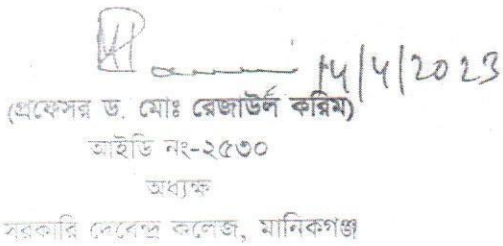 14/4/2023
(প্রফেসর ড. মোঃ রেজাউল করিম)
আইডি নং-২৫৩০
অধ্যক্ষ
সরকারি দেবেন্দ্র কলেজ, মানিকগঞ্জ